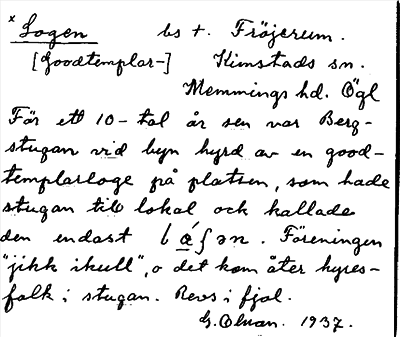 x Logen bs t. Fröjerum.
[Goodtemplar-] Kimstads sn.
Memmings hd. Ögl
För ett 10-tal år sen var Berg-
stugan vid byn hyrd av en good-
templarloge på platsen, som hade
stugan till lokal och kallade
den endast Föreningen
"jikk ikull", o det kom åter hyres-
folk i stugan. Revs i fjol.
G. Olman. 1937.